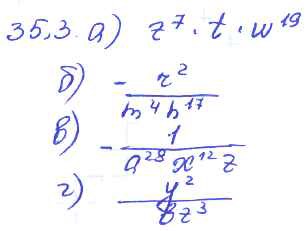 35,3. а) z⁷ · t · w¹⁹
б) - r² / (m⁴ n¹⁷)
в) - 1 / (a²⁸ x¹² z)
г) y² / (8z³)